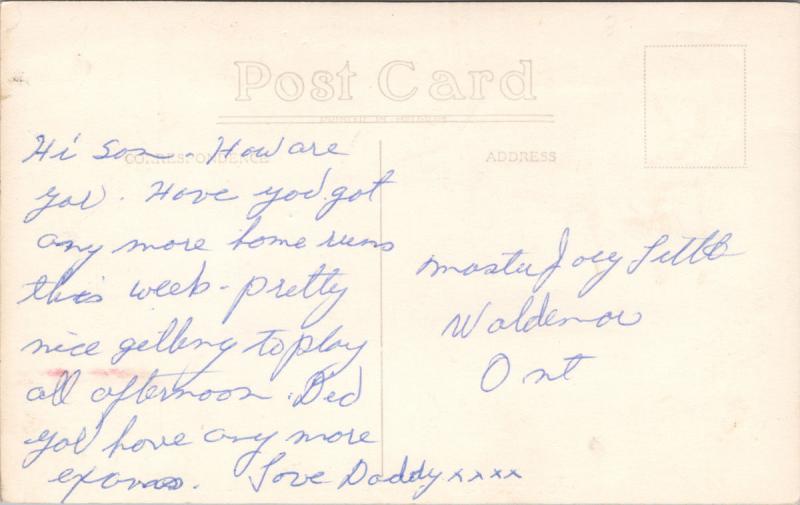 Post Card
CORRESPONDENCE
ADDRESS
Hi Son - How are
you. Have you got
any more home runs
this week - pretty
nice getting to play
all afternoon. Did
you have any more
exams. Love Daddy xxxx
Master Joey Little
Waldemar
Ont